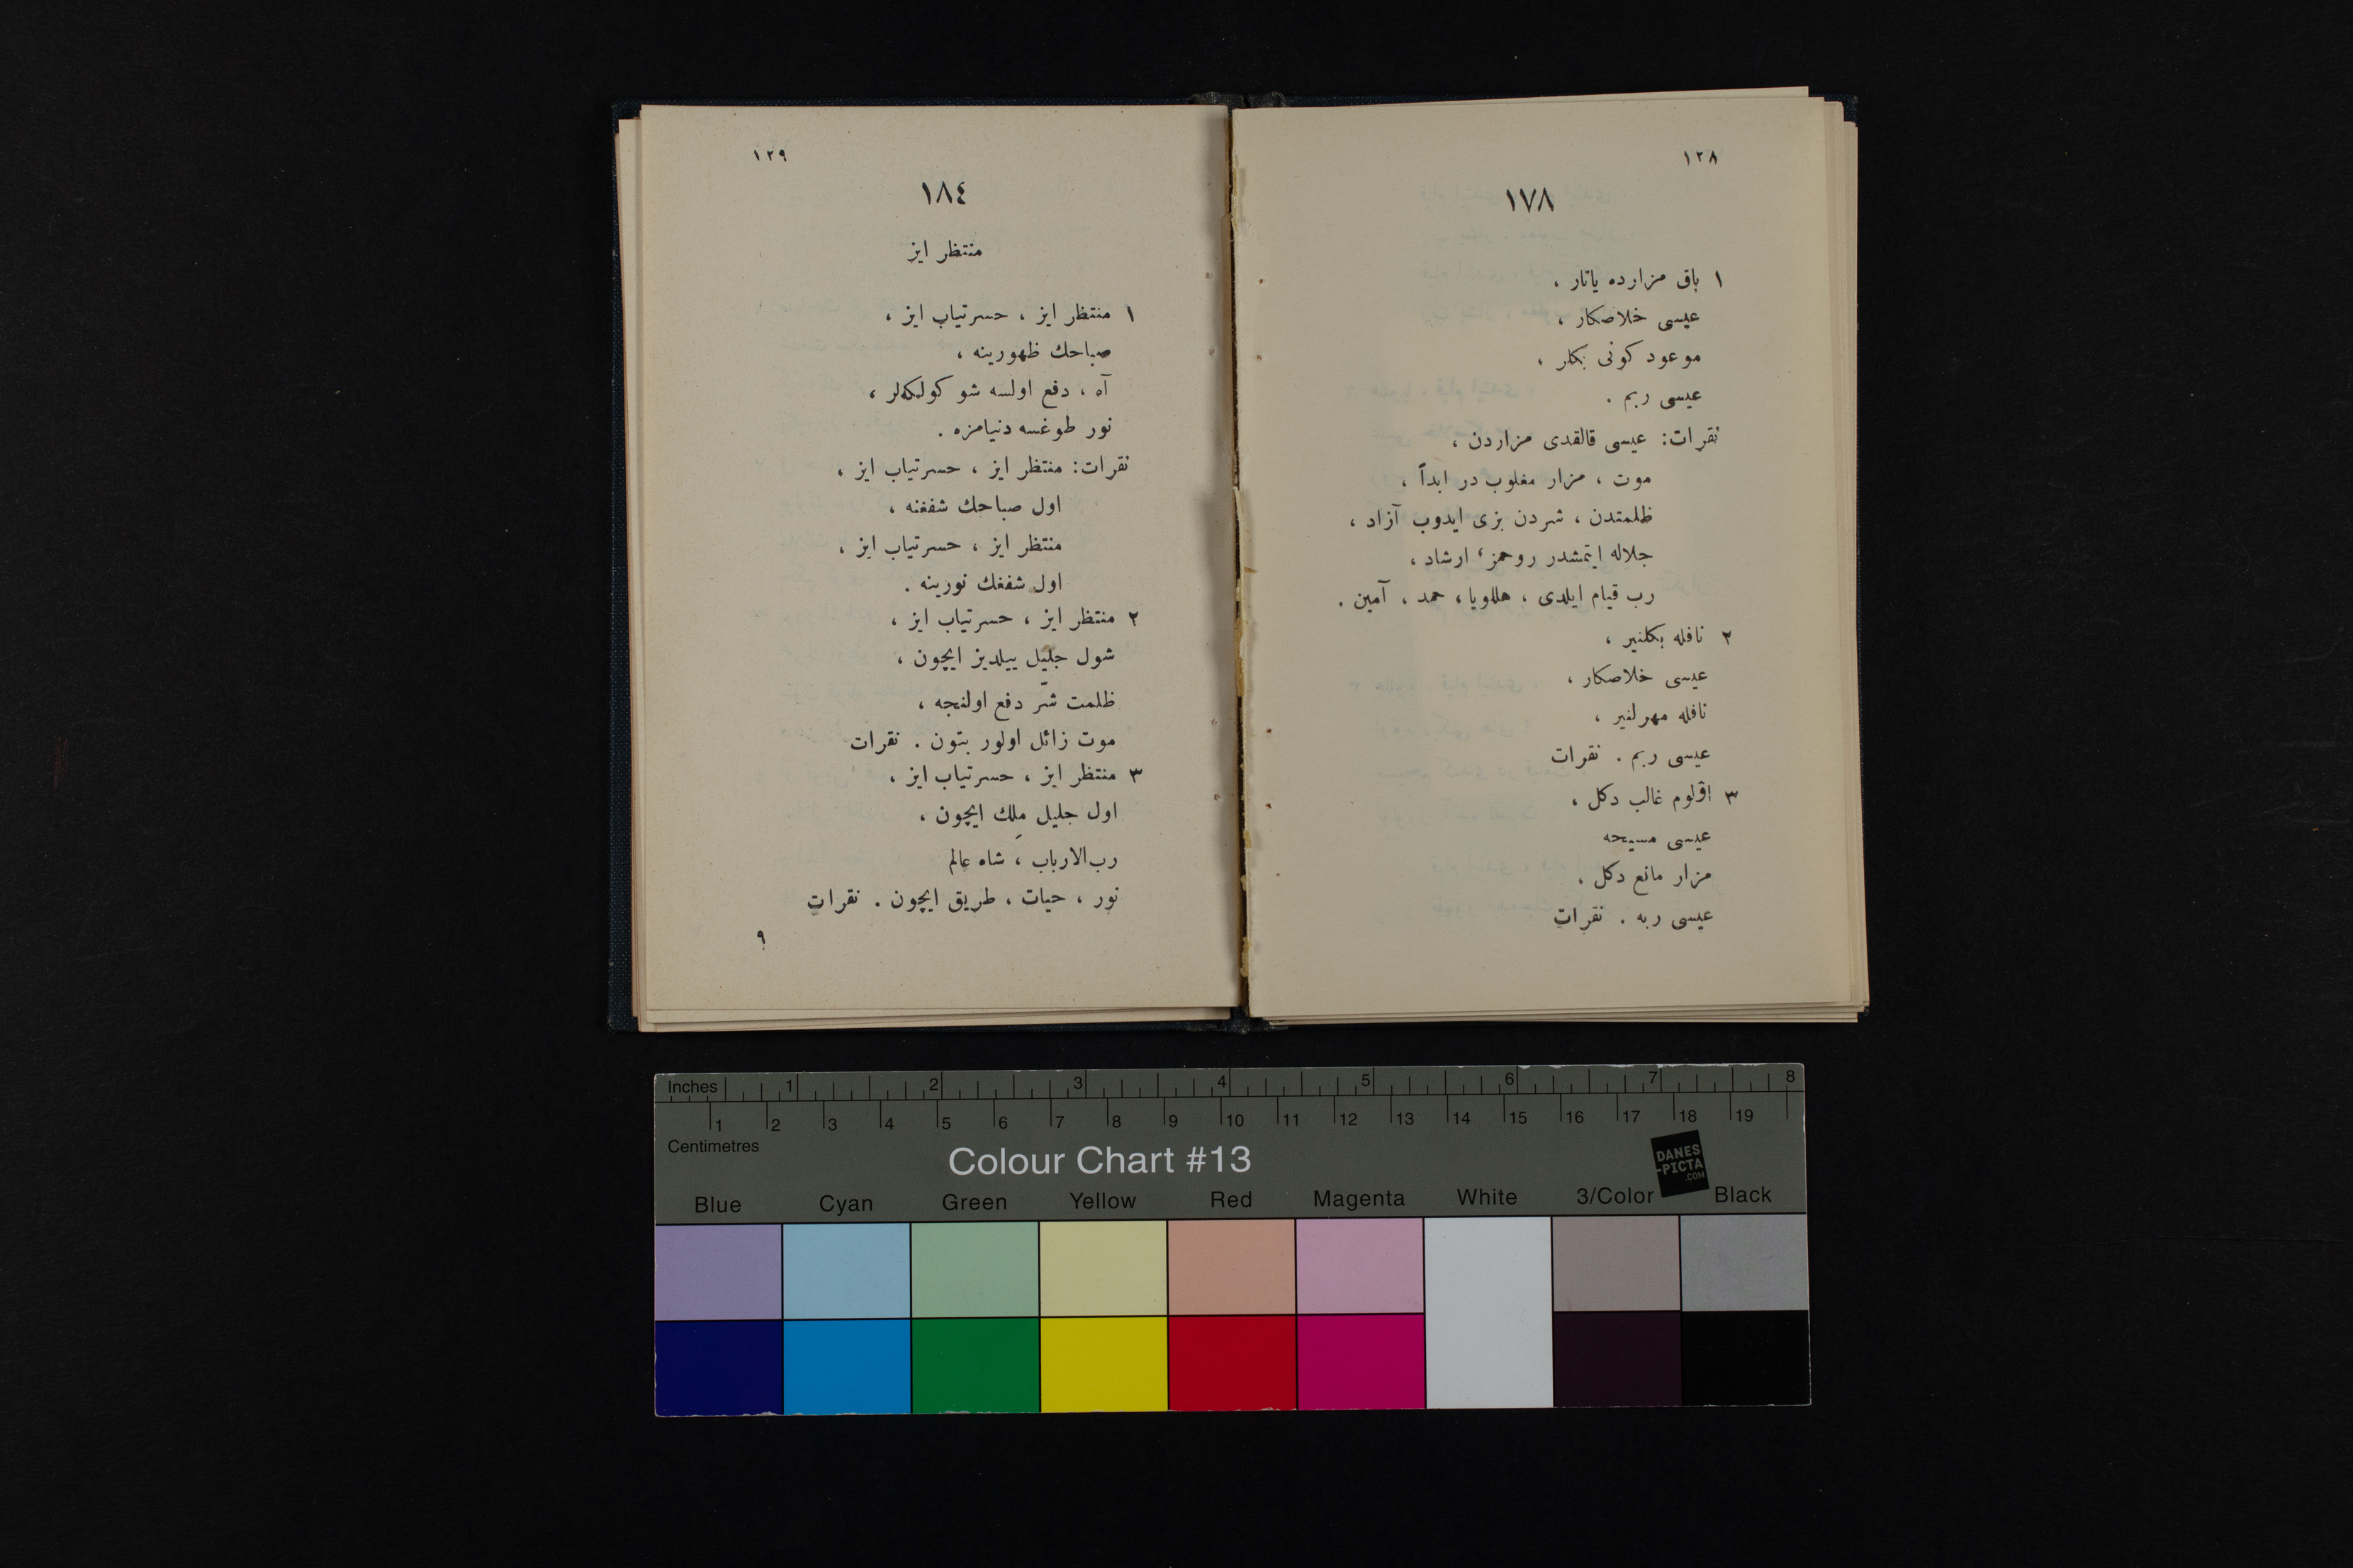 ١٢٨
١٧٨
١ باق مزارده ياتار ،
عيسى خلاصكار ،
موعود كونى بكلر ،
عيسى ربم .
نقرات: عيسى قالقدى مزاردن ،
موت ، مزار مغلوب در ابداً ،
ظلمتدن ، شردن بزى ايدوب آزاد ،
جلاله ايتمشدر روحمزء ارشاد ،
رب قيام ايلدى ، هللويا ، حمد ، آمين .
٢ نافله بكلنير ،
عيسى خلاصكار ،
نافله مهرلنير ،
عيسى ربم . نقرات
٣ اۋلوم غالب دكل ،
عيسى مسيحه
مزار مانع دكل ،
عيسى ربه . نقرات
١٢٩
١٨٤
منتظر ايز
١ منتظر ايز ، حسرتياب ايز ،
صباحك ظهورينه ،
آه ، دفع اولسه شو كولكه‌لر ،
نور طوغسه دنيامزه .
نقرات: منتظر ايز ، حسرتياب ايز ،
اول صباحك شفغنه ،
منتظر ايز ، حسرتياب ايز ،
اول شفغك نورينه .
٢ منتظر ايز ، حسرتياب ايز ،
شول جليل ييلديز ايچون ،
ظلمت شرّ دفع اولنجه ،
موت زائل اولور بتون . نقرات
٣ منتظر ايز ، حسرتياب ايز ،
اول جليل ملِك ايچون ،
رب‌الارباب ، شاه عالم
نور ، حيات ، طريق ايچون . نقرات
٩
Inches 1 2 3 4 5 6 7 8
1 2 3 4 5 6 7 8 9 10 11 12 13 14 15 16 17 18 19
Centimetres
Colour Chart #13
DANES
-PICTA
.COM
Blue Cyan Green Yellow Red Magenta White 3/Color Black